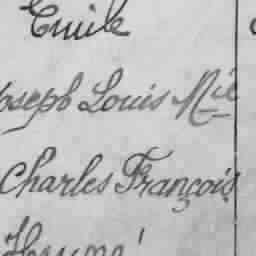 Emile
Joseph Louis Mie
Charles François